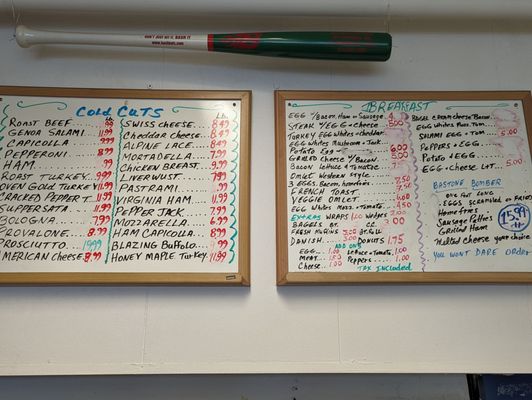 DON'T JUST HIT IT, BASH IT
COLD CUTS
Lb
ROAST BEEF
GENOA SALAMI 11.99
CAPICOLLA 9.99
PEPPERONI 8.99
HAM 9.99
ROAST TURKEY 9.99
OVEN GOLD TURKEY 11.99
CRACKED PEPPERT 11.99
SUPPERSATA
BOLOGNA 7.99
PROVALONE 8.99
PROSCIUTTO 19.99
MERICAN CHEESE 8.99
Lb
SWISS CHEESE 8.49
Cheddar cheese 8.49
ALPINE LACE 8.49
MORTADELLA 7.99
CHICKEN BREAST 9.99
LIVERWUST
PASTRAMI
VIRGINIA HAM 11.99
PEPPER JACK 7.99
MOZZARELLA 6.99
HAM CAPICOLLA 8.99
BLAZING Buffalo 9.99
HONEY MAPLE Turkey 11.99
BREAKFAST
EGG w/Bacon Ham or Sausage 4
STEAK w/EGG + cheese 8.00
TURKEY EGG Whites + cheddar
EGG Whites Mushroom + Jack
Potato Egg 6.00
Grilled cheese w/Bacon 5.00
Bacon lettuce + Tomato
Omlet Western style
3 EGGS, Bacon, homefries 7.50
FRENCH TOAST 7.50
VEGGIE OMLET 6.00
EGG Whites Mozz. Tomato 4.50
EXTRAS WRAPS 1.00 Wedges 2.00
BAGELS BT. C.C. 3.00
FRESH MUFFINS 3.00 BT. Roll
DANISH 3.00 DONUTS 1.75
ADD ONS
EGG 1.00 Lettuce + Tomato 1.00
MEAT 1.50 Peppers 1.00
Cheese 1.00 TAX Included
BAGEL CREAM cheese Bacon
EGG whites Mozz. Tom.
SALAMI EGG + Tom 5.00
PEPPERS + EGG
Potato + EGG
EGG + cheese LET 5.00
BOSTONE BOMBER
one Foot Long
EGGS SCRAMBLED or FRIED
Homefries
Sausage Patties
Grilled Ham
melted cheese your choice
15.99
YOU WONT DARE ORDER